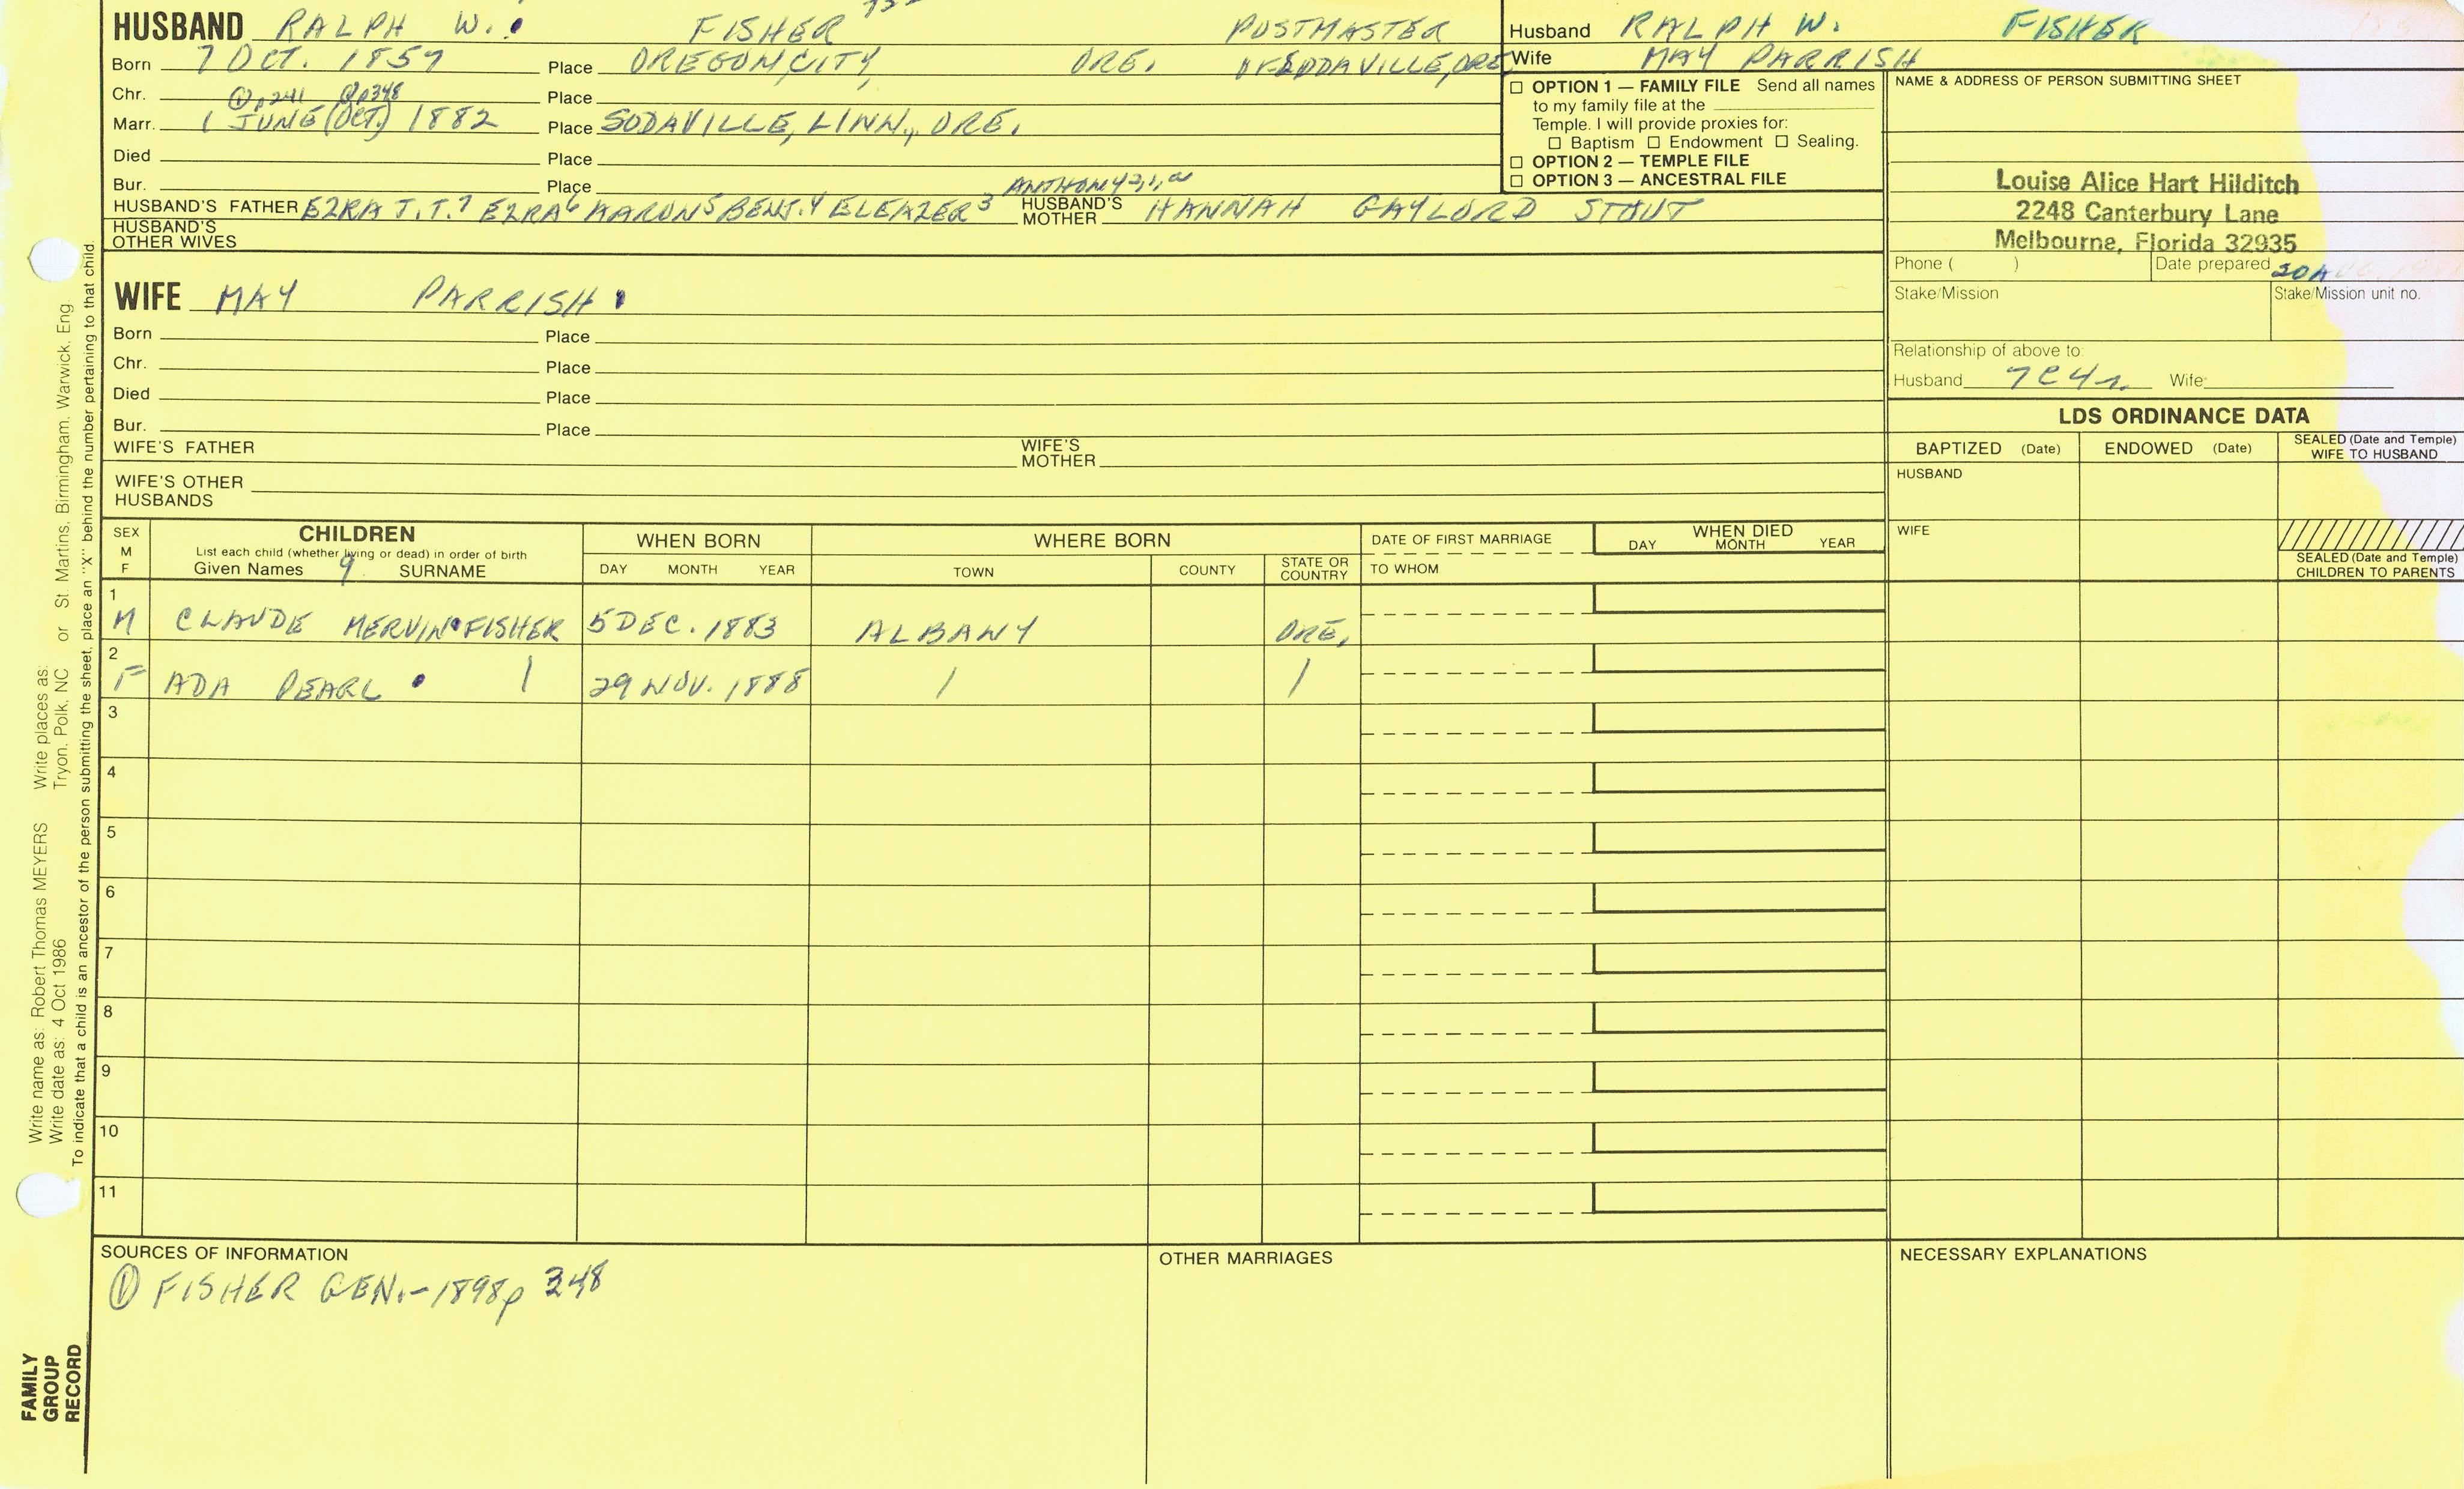 HUSBAND RALPH W. FISHER POSTMASTER
Born 7 OCT. 1859 Place OREGON CITY, ORE. OF SODAVILLE, ORE
Chr. ① p241 ① p348 Place
Marr. 1 JUNE (OCT.) 1882 Place SODAVILLE, LINN, ORE.
Died Place
Bur. Place
ANTHONY 2,1,
HUSBAND'S FATHER EZRA T.T.7 EZRA6 AARON5 BENJ.4 ELEAZER3 HUSBAND'S MOTHER HANNAH GAYLORD STOUT
HUSBAND'S OTHER WIVES
Husband RALPH W. FISHER
Wife MAY PARRISH
☐ OPTION 1 — FAMILY FILE Send all names
to my family file at the
Temple. I will provide proxies for:
☐ Baptism ☐ Endowment ☐ Sealing.
☐ OPTION 2 — TEMPLE FILE
☐ OPTION 3 — ANCESTRAL FILE
NAME & ADDRESS OF PERSON SUBMITTING SHEET
Louise Alice Hart Hilditch
2248 Canterbury Lane
Melbourne, Florida 32935
Phone ( ) Date prepared
Stake/Mission Stake/Mission unit no.
Relationship of above to:
Husband 7C4r. Wife:
WIFE MAY PARRISH
Born Place
Chr. Place
Died Place
Bur. Place
WIFE'S FATHER WIFE'S MOTHER
WIFE'S OTHER HUSBANDS
LDS ORDINANCE DATA
BAPTIZED (Date) ENDOWED (Date) SEALED (Date and Temple) WIFE TO HUSBAND
HUSBAND
WIFE
SEALED (Date and Temple) CHILDREN TO PARENTS
SEX M F
CHILDREN
List each child (whether living or dead) in order of birth
Given Names 9 SURNAME
WHEN BORN
DAY MONTH YEAR
WHERE BORN
TOWN COUNTY STATE OR COUNTRY
DATE OF FIRST MARRIAGE
TO WHOM
WHEN DIED
DAY MONTH YEAR
1
M CLAUDE MERVIN FISHER 5 DEC. 1883 ALBANY ORE.
2
F ADA PEARL / 29 NOV. 1888 / /
3
4
5
6
7
8
9
10
11
SOURCES OF INFORMATION
① FISHER GEN.-1898 p 348
OTHER MARRIAGES
NECESSARY EXPLANATIONS
Write name as: Robert Thomas MEYERS Write places as: or St. Martins, Birmingham, Warwick, Eng
Write date as: 4 Oct 1986 Tryon, Polk, NC
To indicate that a child is an ancestor of the person submitting the sheet, place an "X" behind the number pertaining to that child.
FAMILY
GROUP
RECORD